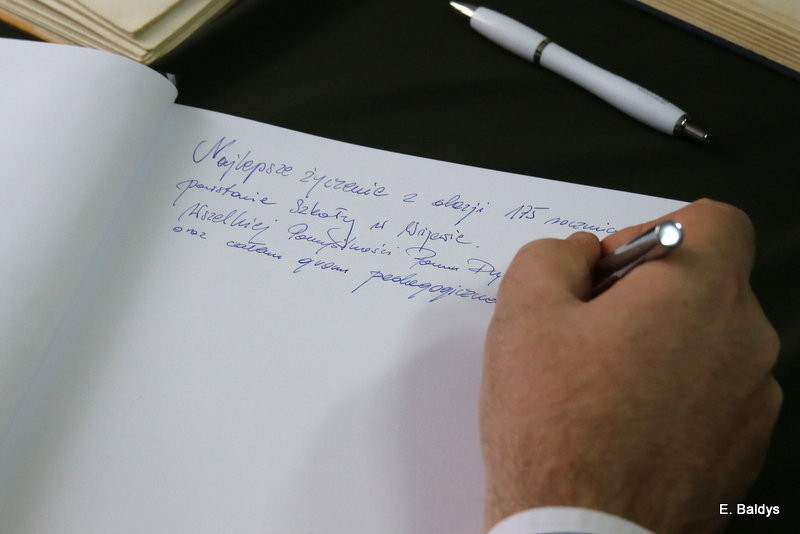 Najlepsze życzenie z okazji 175 rocznic
powstanie Szkoły w Wijewie.
Wszelkiej Pomyślności Panu Dy
oraz całem gronu pedagogiczne
E. Baldys